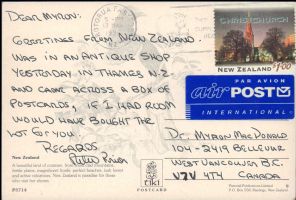 DEAR MYRON:
GREETINGS FROM NEW ZEALAND.
WAS IN AN ANTIQUE SHOP
YESTERDAY IN THAMES N.Z
AND CAME ACROSS A BOX OF
POSTCARDS, IF I HAD ROOM
WOULD HAVE BOUGHT THE
LOT FOR YOU.
REGARDS
CHRISTCHURCH
$1.00
NEW ZEALAND
PAR AVION
air POST
INTERNATIONAL
DR MYRON MACDONALD
104-2419 BELLEVUE
WEST VANCOUVER B.C.
V7V 4T4 CANADA
New Zealand
P3714
tiki
POSTCARD